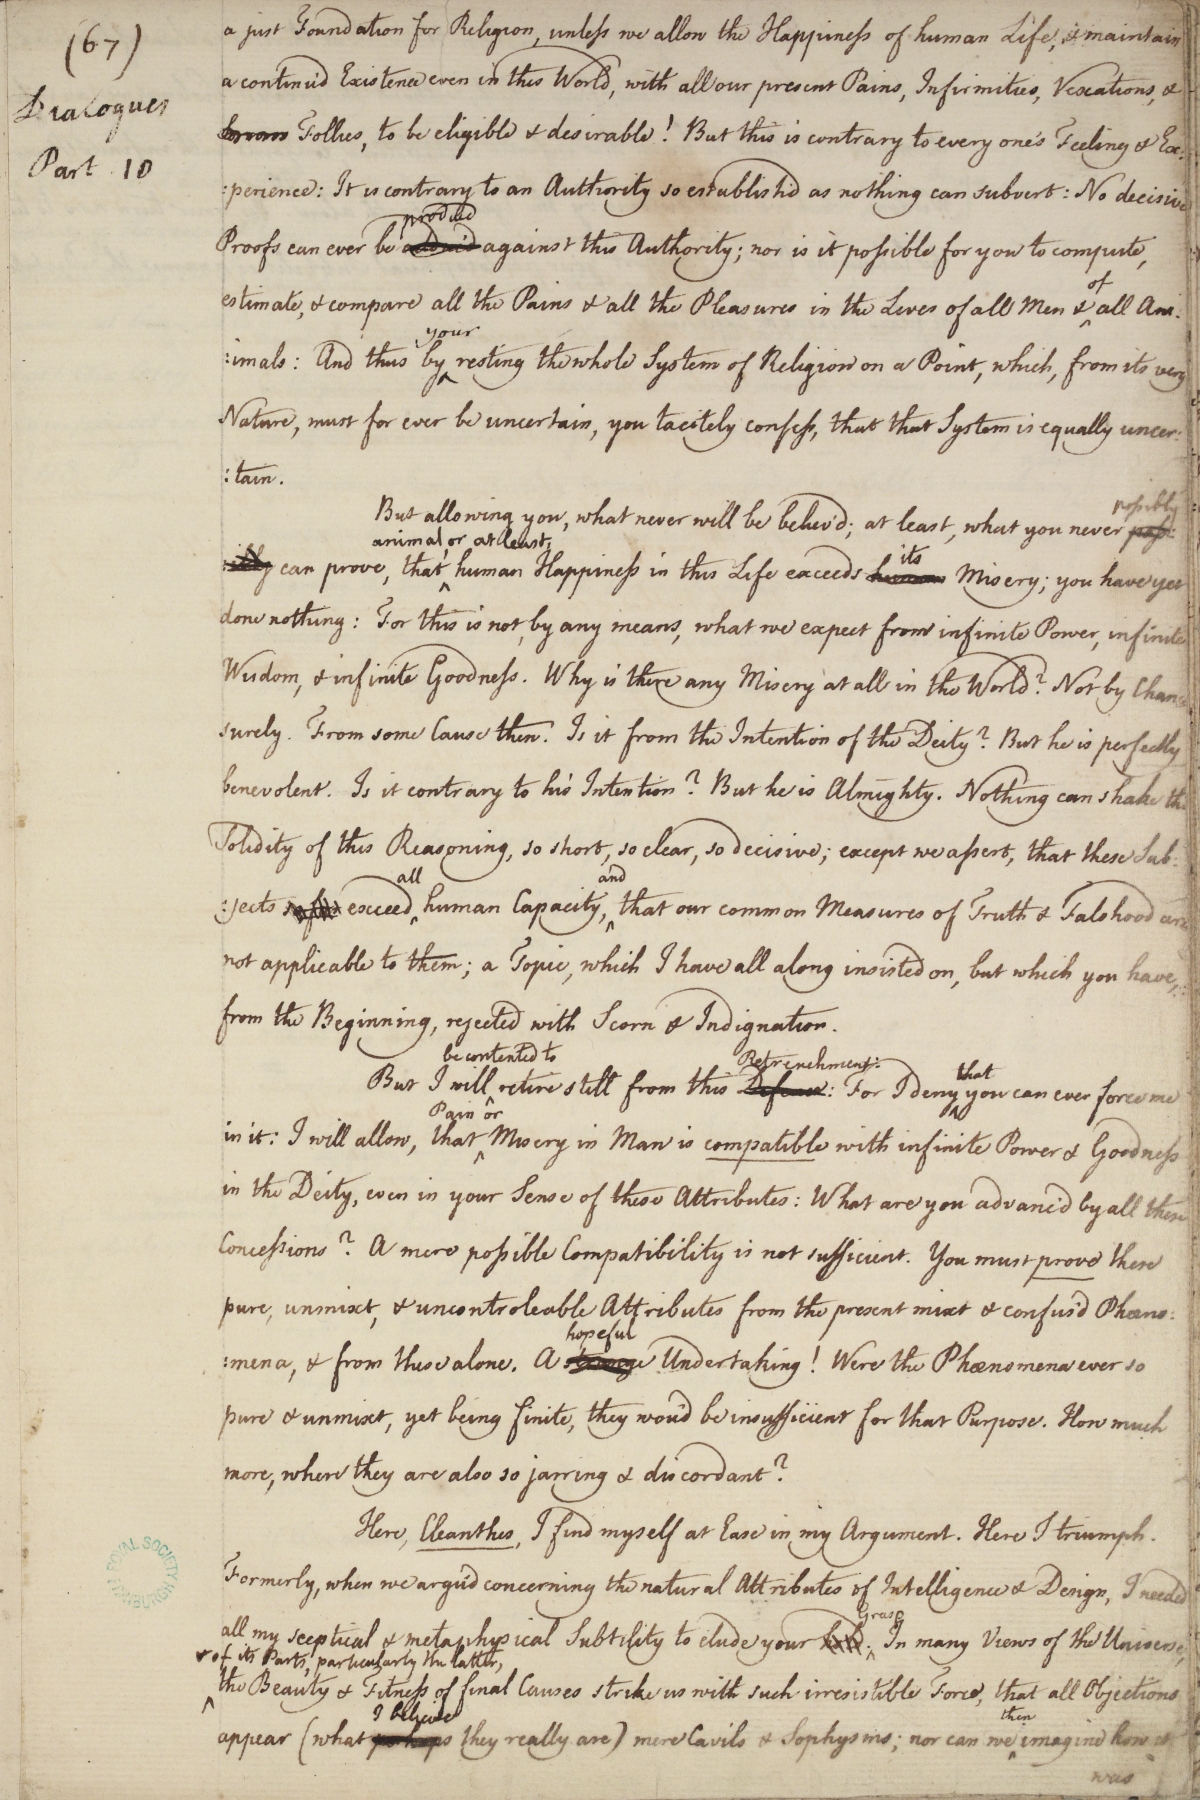 (67)
Dialogues
Part 10
a just Foundation for Religion, unless we allow the Happiness of human Life, & maintain
a continu'd Existence even in this World, with all our present Pains, Infirmities, Vexations, &
Follies, to be eligible & desirable! But this is contrary to every one's Feeling & Ex:
:perience: It is contrary to an Authority so establish'd as nothing can subvert: No decisive
produc'd
Proofs can ever be against this Authority; nor is it possible for you to compute,
of
estimate, & compare all the Pains & all the Pleasures in the Lives of all Men & all Ani:
your
:imals: And thus by resting the whole System of Religion on a Point, which, from its very
Nature, must for ever be uncertain, you tacitely confess, that that System is equally uncer:
:tain.
possibly
But allowing you, what never will be believ'd; at least, what you never possi:
animal or at least, its
:bly can prove, that human Happiness in this Life exceeds human Misery; you have yet
done nothing: For this is not, by any means, what we expect from infinite Power, infinite
Wisdom, & infinite Goodness. Why is there any Misery at all in the World? Not by Chance
surely. From some Cause then. Is it from the Intention of the Deity? But he is perfectly
benevolent. Is it contrary to his Intention? But he is Almighty. Nothing can shake the
Solidity of this Reasoning, so short, so clear, so decisive; except we assert, that these Sub:
all and
:jects exceed human Capacity, that our common Measures of Truth & Falshood are
not applicable to them; a Topic, which I have all along insisted on, but which you have,
from the Beginning, rejected with Scorn & Indignation.
be contented to Retrenchment: that
But I will retire still from this Defence: For I deny you can ever force me
Pain or
in it: I will allow, that Misery in Man is compatible with infinite Power & Goodness
in the Deity, even in your Sense of these Attributes: What are you advanc'd by all these
Concessions? A mere possible Compatibility is not sufficient. You must prove these
pure, unmixt, & uncontroleable Attributes from the present mixt & confus'd Phæno:
hopeful
:mena, & from these alone. A strange Undertaking! Were the Phænomena ever so
pure & unmixt, yet being finite, they wou'd be insufficient for that Purpose. How much
more, where they are also so jarring & discordant?
Here, Cleanthes, I find myself at Ease in my Argument. Here I triumph.
Formerly, when we argu'd concerning the natural Attributes of Intelligence & Design, I needed
Grasp
all my sceptical & metaphysical Subtility to elude your In many Views of the Universe,
& of its Parts, particularly the latter,
the Beauty & Fitness of final Causes strike us with such irresistible Force, that all Objections
I believe then
appear (what perhaps they really are) mere Cavils & Sophysms; nor can we imagine how it
was
ROYAL SOCIETY